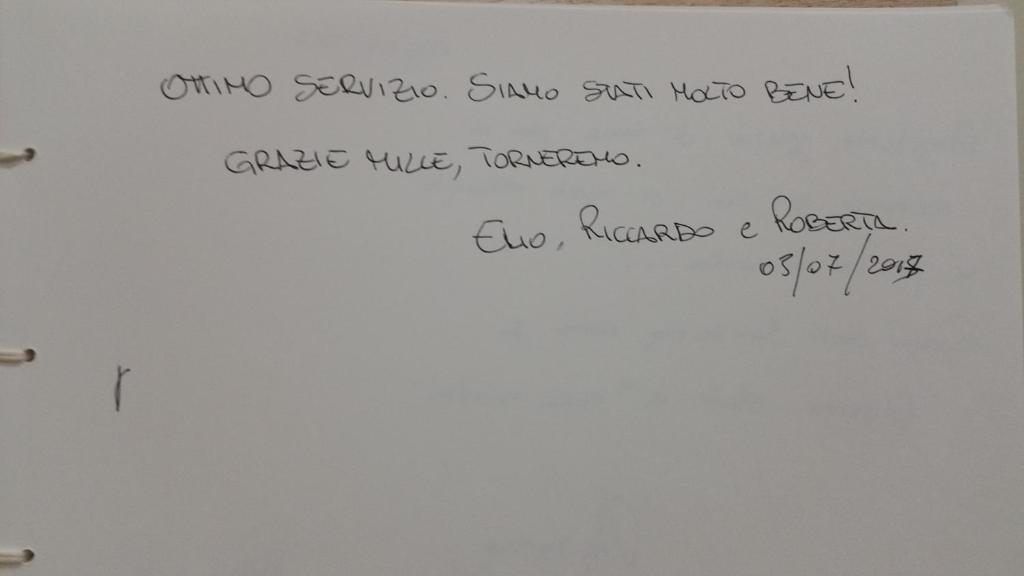 OTTIMO SERVIZIO. SIAMO STATI MOLTO BENE!
GRAZIE MILLE, TORNEREMO.
ELIO, RICCARDO e ROBERTA.
03/07/2017